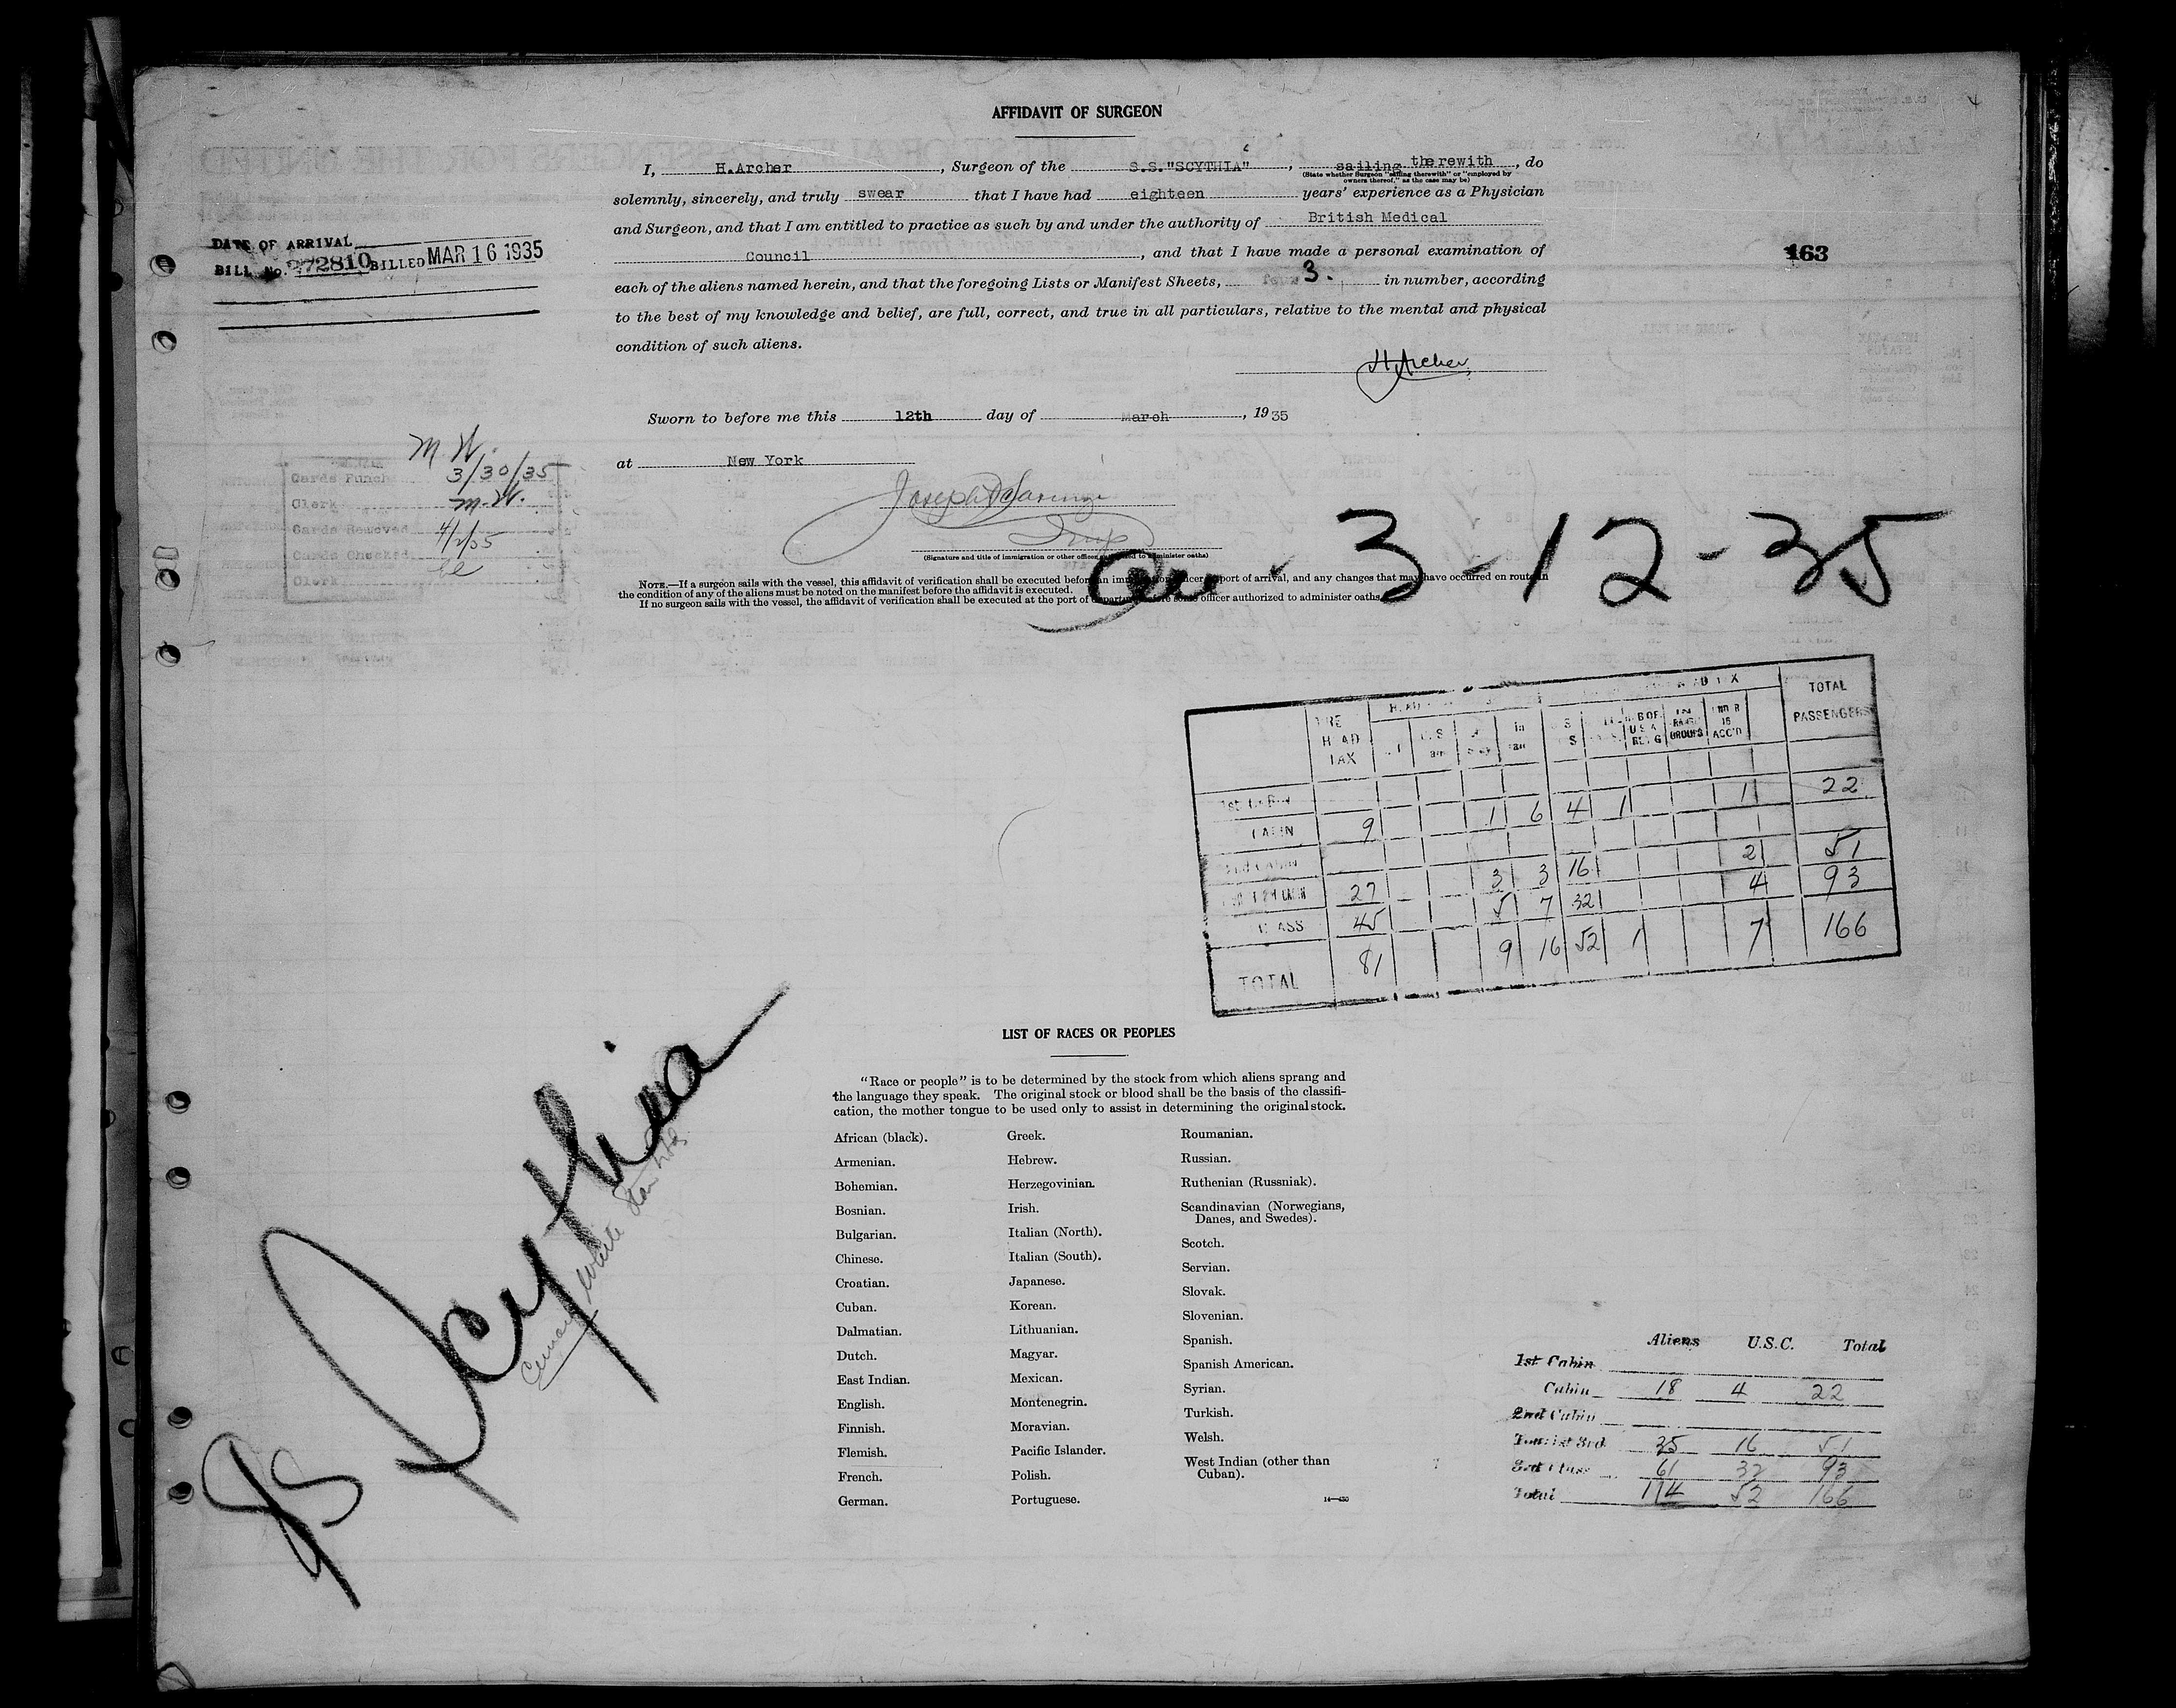 AFFIDAVIT OF SURGEON
I, H.Archer, Surgeon of the S.S."SCYTHIA", sailing therewith, do
(State whether Surgeon "sailing therewith" or "employed by
owners thereof," as the case may be)
solemnly, sincerely, and truly swear that I have had eighteen years' experience as a Physician
and Surgeon, and that I am entitled to practice as such by and under the authority of British Medical
Council, and that I have made a personal examination of
each of the aliens named herein, and that the foregoing Lists or Manifest Sheets, 3. in number, according
to the best of my knowledge and belief, are full, correct, and true in all particulars, relative to the mental and physical
condition of such aliens.
H Archer
DATE OF ARRIVAL
BILL No. 272810 BILLED MAR 16 1935
163
Sworn to before me this 12th day of March, 1935
at New York
M.W.
Cards Punch 3/30/35
Clerk M.W.
Cards Removed 4/2/35
Cards Checked
Clerk
(Signature and title of immigration or other officer authorized to administer oaths)
3-12-35
NOTE.—If a surgeon sails with the vessel, this affidavit of verification shall be executed before an immigration officer at port of arrival, and any changes that may have occurred en route in
the condition of any of the aliens must be noted on the manifest before the affidavit is executed.
If no surgeon sails with the vessel, the affidavit of verification shall be executed at the port of departure before some officer authorized to administer oaths.
HEAD TAX TOTAL PASSENGERS
CABIN 9 1 6 4 1 1 22
27 3 3 16 2 51
CLASS 45 5 7 32 4 93
TOTAL 81 9 16 52 1 7 166
LIST OF RACES OR PEOPLES
"Race or people" is to be determined by the stock from which aliens sprang and
the language they speak. The original stock or blood shall be the basis of the classifi-
cation, the mother tongue to be used only to assist in determining the original stock.
African (black).
Armenian.
Bohemian.
Bosnian.
Bulgarian.
Chinese.
Croatian.
Cuban.
Dalmatian.
Dutch.
East Indian.
English.
Finnish.
Flemish.
French.
German.
Greek.
Hebrew.
Herzegovinian.
Irish.
Italian (North).
Italian (South).
Japanese.
Korean.
Lithuanian.
Magyar.
Mexican.
Montenegrin.
Moravian.
Pacific Islander.
Polish.
Portuguese.
Roumanian.
Russian.
Ruthenian (Russniak).
Scandinavian (Norwegians,
Danes, and Swedes).
Scotch.
Servian.
Slovak.
Slovenian.
Spanish.
Spanish American.
Syrian.
Turkish.
Welsh.
West Indian (other than
Cuban).
14—430
SS Scythia
Cunard White Star Ltd
Aliens U.S.C. Total
1st Cabin
Cabin 18 4 22
2nd Cabin
Tourist 3rd 35 16 51
3rd Class 61 32 93
Total 114 52 166